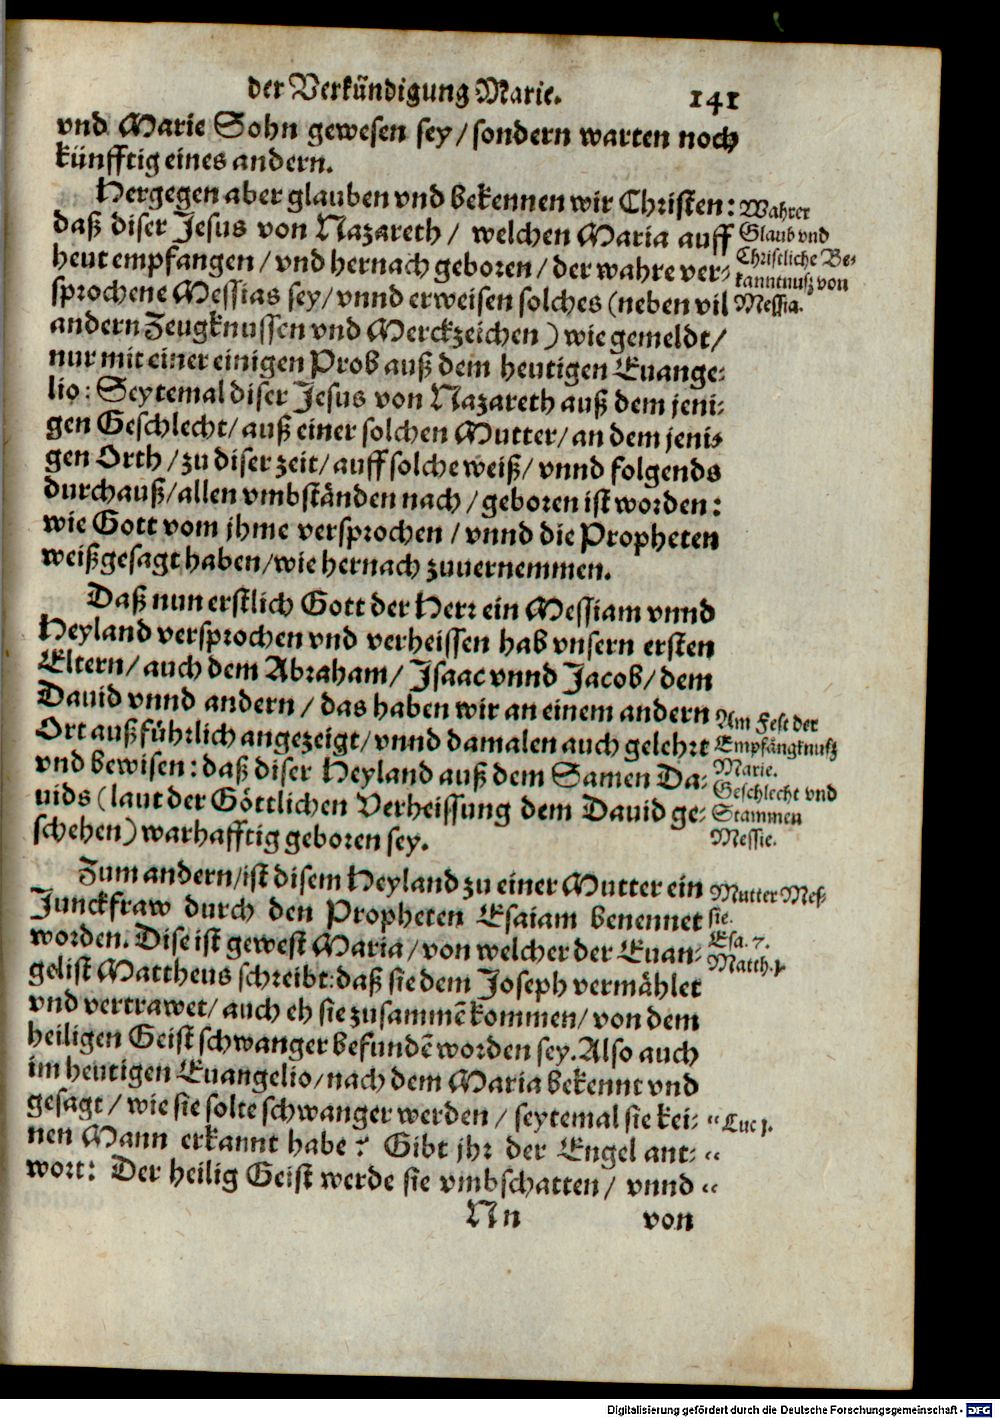 der Verkündigung Marie. 141
vnd Marie Sohn gewesen sey / sondern warten noch
künfftig eines andern.
Hergegen aber glauben vnd bekennen wir Christen:
daß diser Jesus von Nazareth / welchen Maria auff
heut empfangen / vnd hernach geboren / der wahre ver-
sprochene Messias sey / vnnd erweisen solches (neben vil
andern Zeugknussen vnd Merckzeichen) wie gemeldt /
nur mit einer einigen Prob auß dem heutigen Euange-
lio: Seytemal diser Jesus von Nazareth auß dem jeni-
gen Geschlecht / auß einer solchen Mutter / an dem jeni-
gen Orth / zu diser zeit / auff solche weiß / vnnd folgends
durchauß / allen vmbständen nach / geboren ist worden:
wie Gott vom jhme versprochen / vnnd die Propheten
weißgesagt haben / wie hernach zuuernemmen.
Wahrer
Glaub vnd
Christliche Be-
kanntnuß von
Messia.
Daß nun erstlich Gott der Herr ein Messiam vnnd
Heyland versprochen vnd verheissen hab vnsern ersten
Eltern / auch dem Abraham / Isaac vnnd Jacob / dem
Dauid vnnd andern / das haben wir an einem andern
Ort außführlich angezeigt / vnnd damalen auch gelehrt
vnd bewisen: daß diser Heyland auß dem Samen Da-
uids (laut der Göttlichen Verheissung dem Dauid ge-
schehen) warhafftig geboren sey.
Am Fest der
Empfängknusz
Marie.
Geschlecht vnd
Stammen
Messie.
Zum andern / ist disem Heyland zu einer Mutter ein
Junckfraw durch den Propheten Esaiam benennet
worden. Dise ist gewest Maria / von welcher der Euan-
gelist Mattheus schreibt: daß sie dem Joseph vermählet
vnd vertrawet / auch eh sie zusammē kommen / von dem
heiligen Geist schwanger befundē worden sey. Also auch
im heutigen Euangelio / nach dem Maria bekennt vnd
gesagt / wie sie solte schwanger werden / seytemal sie kei-
nen Mann erkannt habe? Gibt jhr der Engel ant-
wort: Der heilig Geist werde sie vmbschatten / vnnd
Mutter Mes-
sie.
Esa. 7.
Matth. 1.
“ Luc 1.
“
“
Nn von
Digitalisierung gefördert durch die Deutsche Forschungsgemeinschaft - DFG